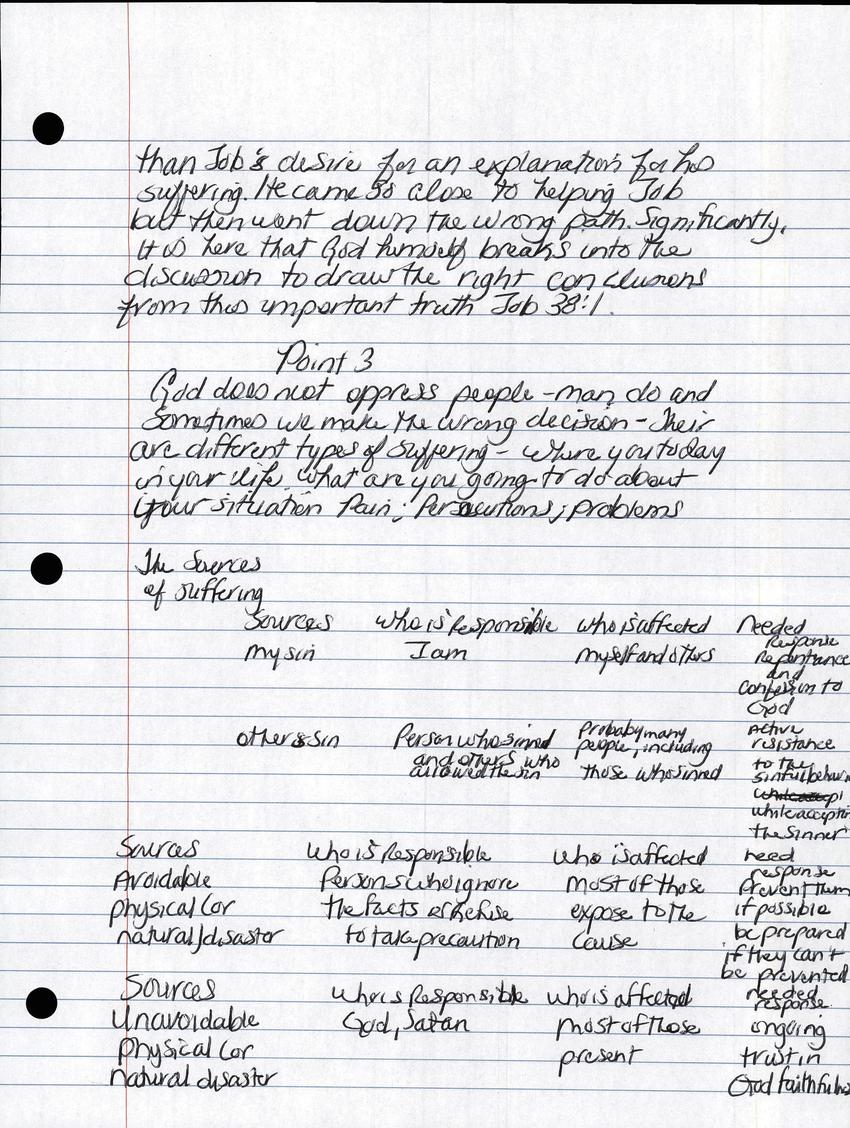 than Job's desire for an explanation for his
suffering. He came so close to helping Job
but then went down the wrong path. Significantly,
it is here that God himself breaks into the
discussion to draw the right conclusions
from this important truth Job 38:1.
Point 3
God does not oppress people - man do and
Sometimes we make the wrong decision - Their
are different types of suffering - where you today
in your life, what are you going to do about
your situation Pain; Persecutions; problems
The Sources
of suffering
Sources who is Responsible who is affected Needed
Response
my sin I am myself and others Repentance
and
confession to
God
others sin Person who sinned Probaby many Active
and others who people, including resistance
allowed the sin those who sinned to the
sinful behavi
while accepti
the sinner
Sources who is Responsible who is affected need
response
Avoidable Persons who ignore most of those prevent them
physical (or the facts or Refuse expose to the if possible
natural) disaster to take precaution cause be prepared
if they can't
be prevented
Sources who is Responsible who is affected needed
response
Unavoidable God, Satan most of those ongoing
physical (or present trust in
natural disaster God faithfulnes